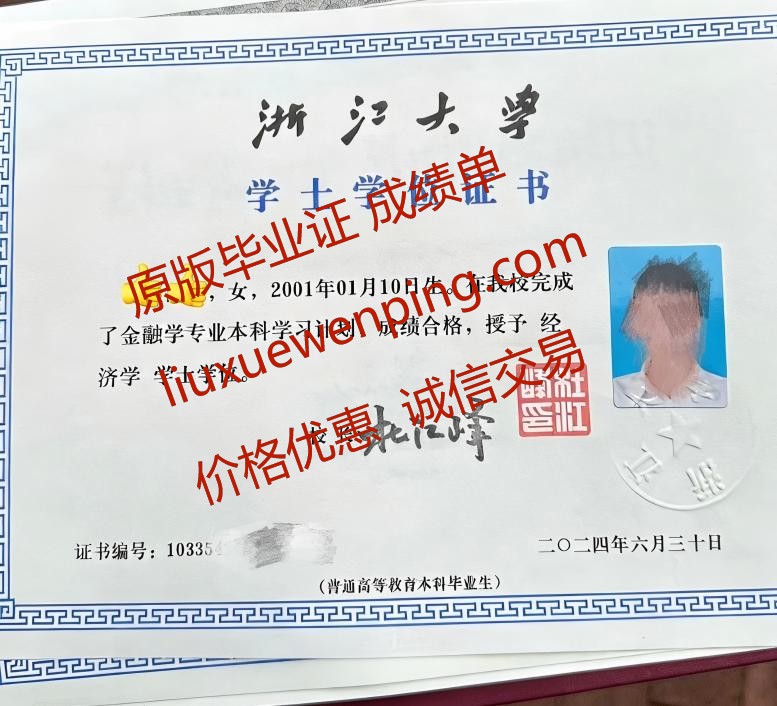 浙江大学
学士学位证书
原版毕业证 成绩单
，女，2001年01月10日生。在我校完成
了金融学专业本科学习计划，成绩合格，授予 经
济学 学士学位。
liuxuewenping.com
价格优惠 诚信交易
校
杜江峰
杜江
峰印
证书编号：103354
二〇二四年六月三十日
（普通高等教育本科毕业生）
浙江大